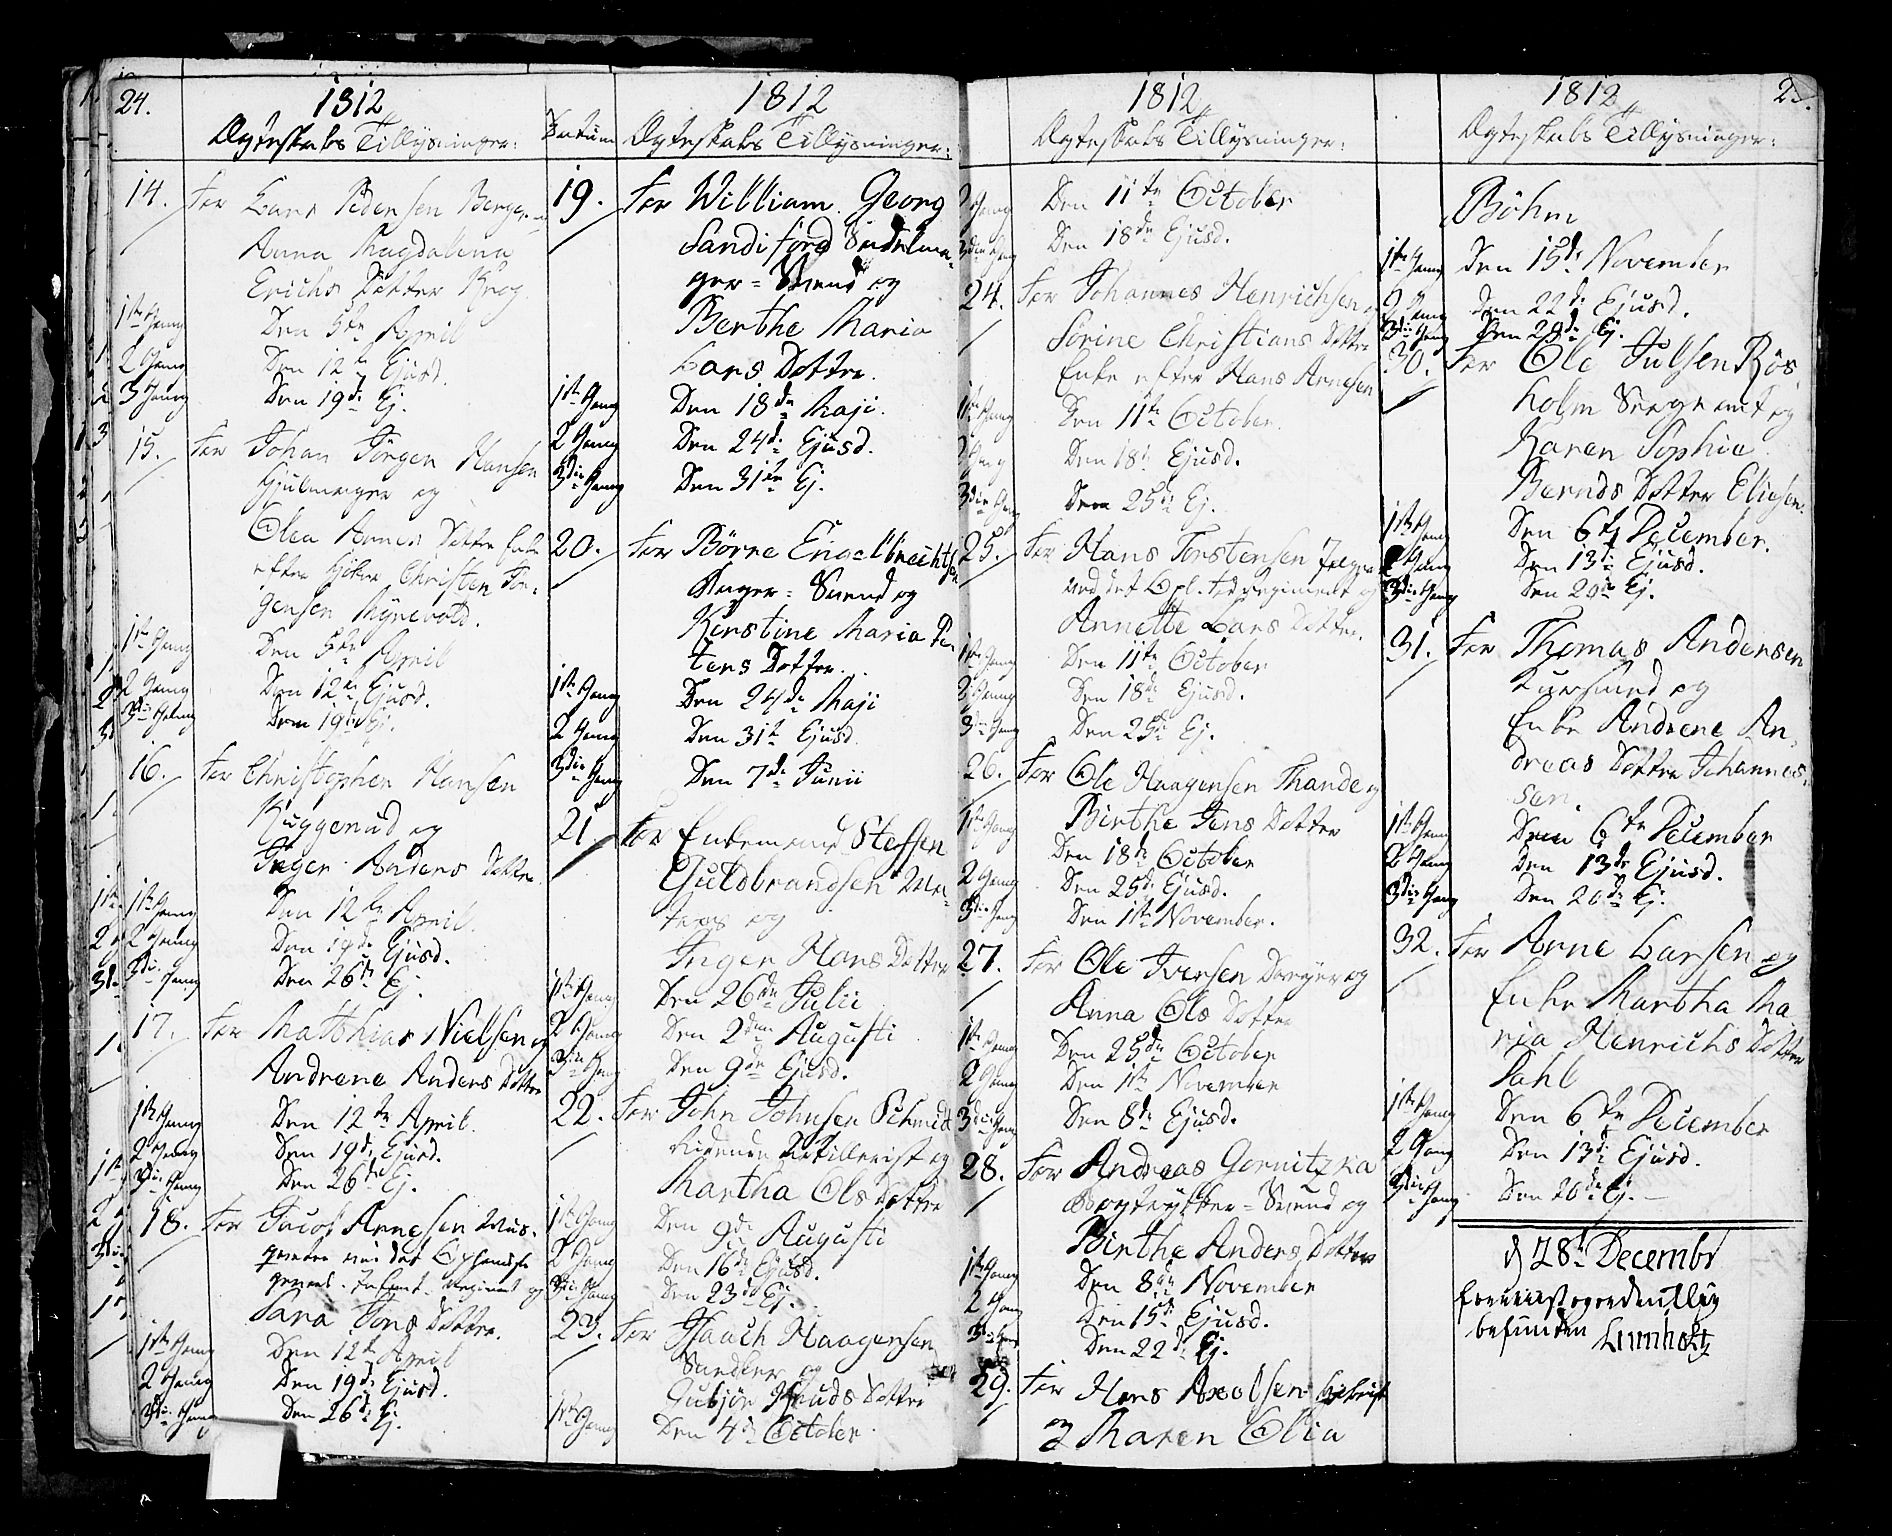 24.
1812
Ægteskabs Tillysninger:
14. For Lars Pedersen Berger og
Anna Magdalena
Erichs Datter Krog
1ste Gang Den 5te April
2 Gang Den 12te Ejusd.
3 Gang Den 19de Ej.
15. For Johan Jörgen Hansen
Hjulmager og
Olea Annes Datter Enke
efter Christen Jör-
gensen Myrevold.
1ste Gang Den 5te April
2 Gang Den 12te Ejusd.
3die Gang Den 19de Ej.
16. For Christopher Hansen
Kuggerud og
Inger Anders Datter.
1ste Gang Den 12te April.
2 Gang Den 19de Ejusd.
3die Gang Den 26de Ej.
17. For Matthias Nielsen og
Andrene Anders Datter
1ste Gang Den 12te April.
2 Gang Den 19de Ejusd.
3die Gang Den 26de Ej.
18. For Jacob Arnesen Mus-
queteer ved det
Infant. Regiment og
Sara Jons Datter.
1ste Gang Den 12te April
2 Gang Den 19de Ejusd.
3die Gang Den 26de Ej.
1812
Datum Ægteskabs Tillysninger:
19. For William Georg
Sandiford Sadelma-
ger-Svend og
Berthe Maria
Lars Datter.
1ste Gang Den 18de Maji.
2 Gang Den 24de Ejusd.
3die Gang Den 31te Ej.
20. For Börre Engelbrechtsen
Svend og
Kirstine Maria Pe-
ters Datter.
1ste Gang Den 24de Maji
2 Gang Den 31te Ejusd
3die Gang Den 7de Junii
21. For Enkemand Steffen
Guldbrandsen
og
Inger Hans Datter
1ste Gang Den 26de Julii
2 Gang Den 2den Augusti
3die Gang Den 9de Ejusd.
22. For John Johnsen Schmidt
Ridende Artillerist og
Martha Ols Datter
1ste Gang Den 9de Augusti
2 Gang Den 16de Ejusd.
3die Gang Den 23de Ej.
23. For Isaach Haagensen
og
Gubjör Knuds Datter
1ste Gang Den 4de October.
1812
Ægteskabs Tillysninger:
2 Gang Den 11te October
3die Gang Den 18de Ejusd.
24. For Johannes Henrichsen og
Sörine Christians Datter
Enke efter Hans Arnesen
1ste Gang Den 11te October.
2 Gang Den 18de Ejusd.
3die Gang Den 25de Ej.
25. For Hans Torstensen
ved det Opl. Inf. regiment og
Annette Lars Datter.
1ste Gang Den 11te October
2 Gang Den 18de Ejusd.
3die Gang Den 25de Ej.
26. For Ole Haagensen Thande og
Birthe Jens Datter
1ste Gang Den 18de October
2 Gang Den 25de Ejusd.
3die Gang Den 1ste November.
27. For Ole Iversen og
Anna Ols Datter
1ste Gang Den 25de October
2 Gang Den 1ste November
3die Gang Den 8de Ejusd.
28. For Andreas Gornitzka
Bogtrykker-Svend og
Birthe Anders Datter
1ste Gang Den 8de November
2 Gang Den 15de Ejusd.
3die Gang Den 22de Ej.
29. For Hans Axelsen
og Maren Olia
1812
Ægteskabs Tillysninger:
Böhm
1ste Gang Den 15de November
2 Gang Den 22de Ejusd.
3die Gang Den 29de Ej.
30. For Ole Julsen Rös-
holm og
Karen Sophie
Bernds Datter Eliesen.
1ste Gang Den 6te December.
2 Gang Den 13de Ejusd.
3die Gang Den 20de Ej.
31. For Thomas Andersen
og
Enke Andrene An-
dreas Datter Johannes-
sen.
1ste Gang Den 6te December
2 Gang Den 13de Ejusd.
3die Gang Den 20de Ej.
32. For Arne Larsen og
Enke Martha Ma-
ria Henrichs Datter
Dahl
1ste Gang Den 6te December
2 Gang Den 13de Ejusd.
3die Gang Den 20de Ej.
d 28de Decembr
befunden Lumholtz